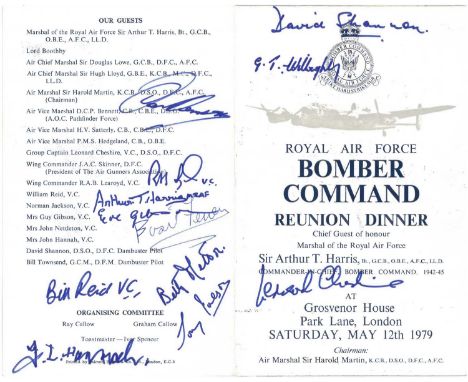 OUR GUESTS
Marshal of the Royal Air Force Sir Arthur T. Harris, Bt., G.C.B.,
O.B.E., A.F.C., LL.D.
Lord Boothby
Air Chief Marshal Sir Douglas Lowe, G.C.B., D.F.C., A.F.C.
Air Chief Marshal Sir Hugh Lloyd, G.B.E., K.C.B., M.C., D.F.C.,
LL.D.
Air Marshal Sir Harold Martin, K.C.B., D.S.O., D.F.C., A.F.C.
(Chairman)
Air Vice Marshal D.C.P. Bennett, C.B., C.B.E., D.S.O.
(A.O.C. Pathfinder Force)
Air Vice Marshal H.V. Satterly, C.B., C.B.E., D.F.C.
Air Vice Marshal P.M.S. Hedgeland, C.B., O.B.E.
Group Captain Leonard Cheshire, V.C., D.S.O., D.F.C.
Wing Commander J.A.C. Skinner, D.F.C.
(President of The Air Gunners Association)
Wing Commander R.A.B. Learoyd, V.C.
William Reid, V.C.
Norman Jackson, V.C.
Mrs Guy Gibson, V.C.
Mrs John Nettleton, V.C.
Mrs John Hannah, V.C.
David Shannon, D.S.O., D.F.C. Dambuster Pilot
Bill Townsend, G.C.M., D.F.M. Dambuster Pilot
V.C.
Bill Reid V.C.
ORGANISING COMMITTEE
Ray Callow Graham Callow
Toastmaster — Ivor Spencer
David Shannon.
ROYAL AIR FORCE
BOMBER
COMMAND
REUNION DINNER
Chief Guest of honour
Marshal of the Royal Air Force
Sir Arthur T. Harris, Bt., G.C.B., O.B.E., A.F.C., LL.D.
COMMANDER-IN-CHIEF BOMBER COMMAND 1942-45
Leonard Cheshire
AT
Grosvenor House
Park Lane, London
SATURDAY, MAY 12th 1979
Chairman:
Air Marshal Sir Harold Martin, K.C.B., D.S.O., D.F.C., A.F.C.